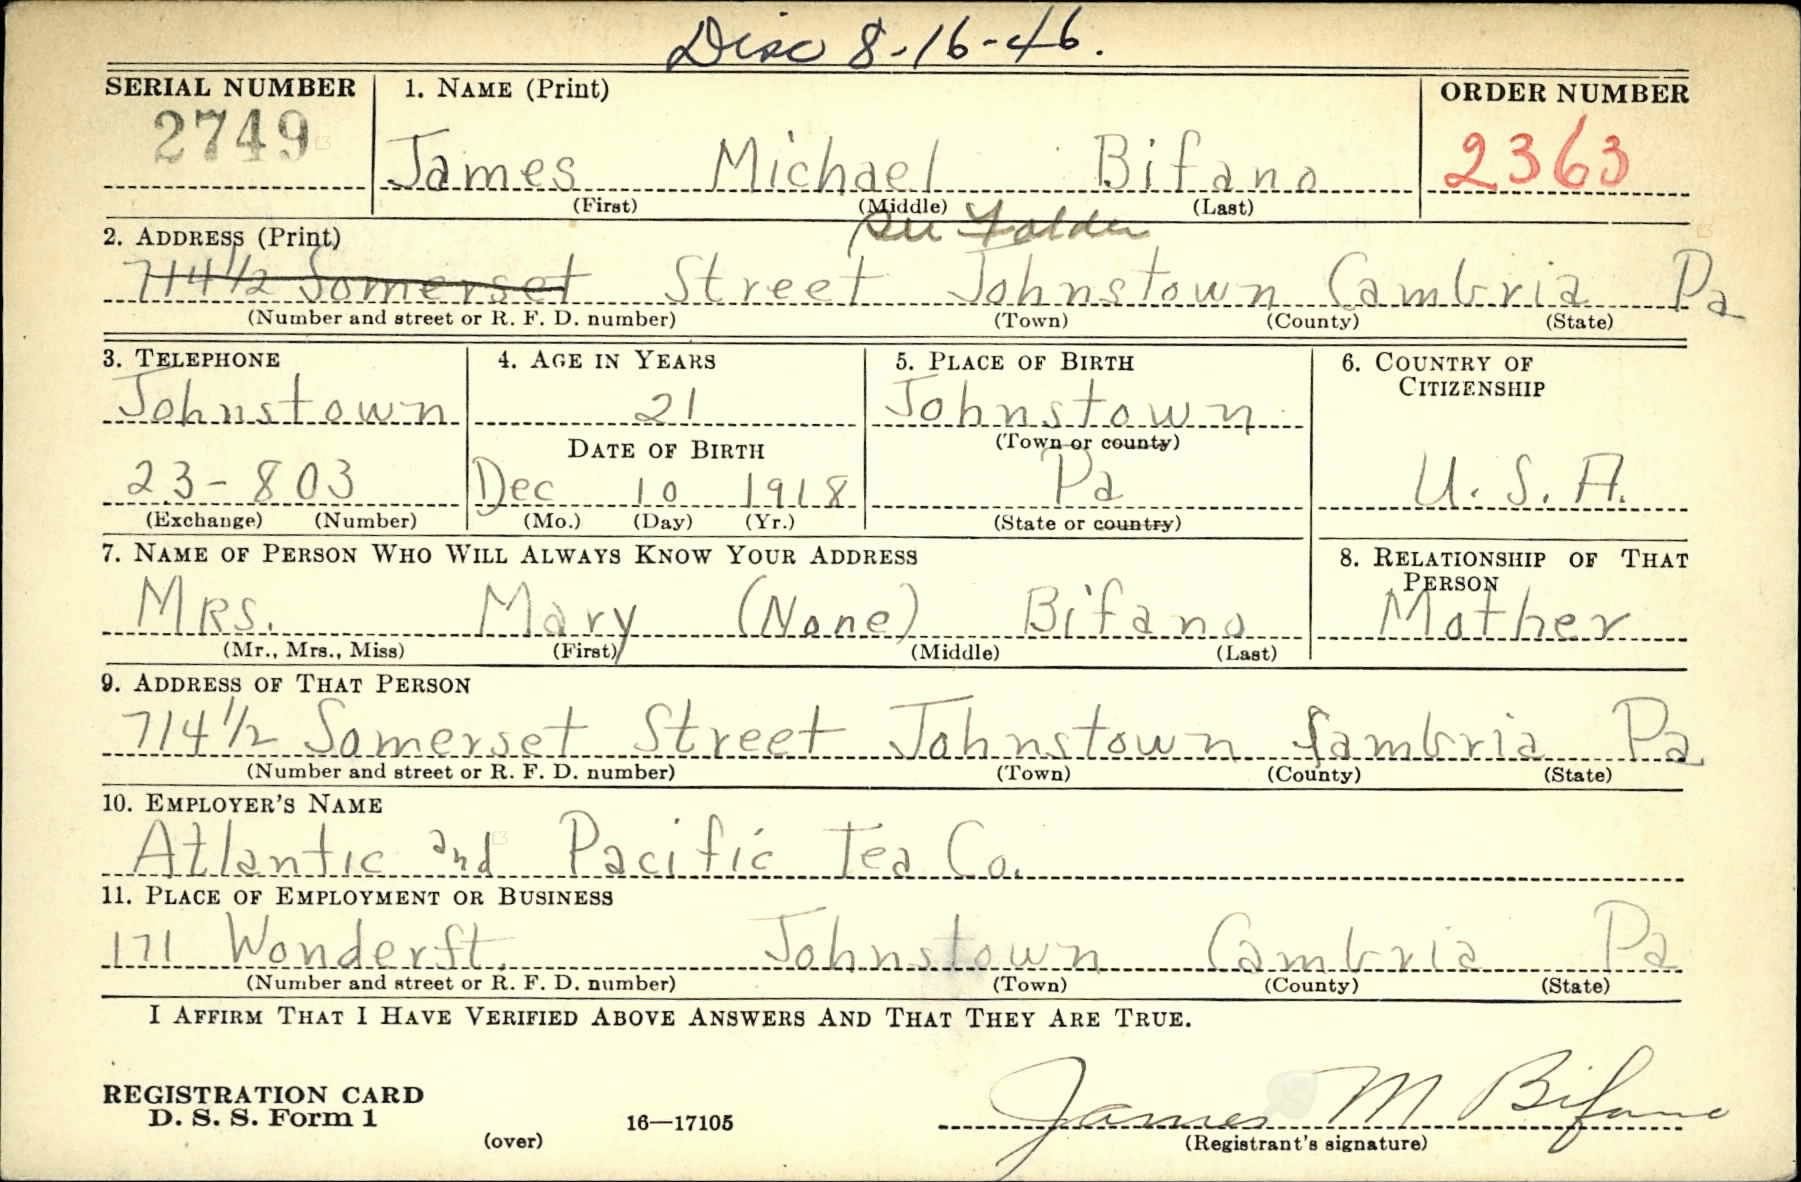 Disc 8-16-46.
SERIAL NUMBER 1. NAME (Print) ORDER NUMBER
2749 James Michael Bifano 2363
(First) (Middle) (Last)
See Folder
2. ADDRESS (Print)
714 1/2 Somerset Street Johnstown Cambria Pa
(Number and street or R. F. D. number) (Town) (County) (State)
3. TELEPHONE 4. AGE IN YEARS 5. PLACE OF BIRTH 6. COUNTRY OF
CITIZENSHIP
Johnstown 21 Johnstown
DATE OF BIRTH (Town or county)
23-803 Dec 10 1918 Pa U. S. A.
(Exchange) (Number) (Mo.) (Day) (Yr.) (State or country)
7. NAME OF PERSON WHO WILL ALWAYS KNOW YOUR ADDRESS 8. RELATIONSHIP OF THAT
PERSON
MRS. Mary (None) Bifano Mother
(Mr., Mrs., Miss) (First) (Middle) (Last)
9. ADDRESS OF THAT PERSON
714 1/2 Somerset Street Johnstown Cambria Pa
(Number and street or R. F. D. number) (Town) (County) (State)
10. EMPLOYER'S NAME
Atlantic and Pacific Tea Co.
11. PLACE OF EMPLOYMENT OR BUSINESS
171 Wonder St. Johnstown Cambria Pa
(Number and street or R. F. D. number) (Town) (County) (State)
I AFFIRM THAT I HAVE VERIFIED ABOVE ANSWERS AND THAT THEY ARE TRUE.
REGISTRATION CARD
D. S. S. Form 1 16—17105 James M Bifano
(over) (Registrant's signature)